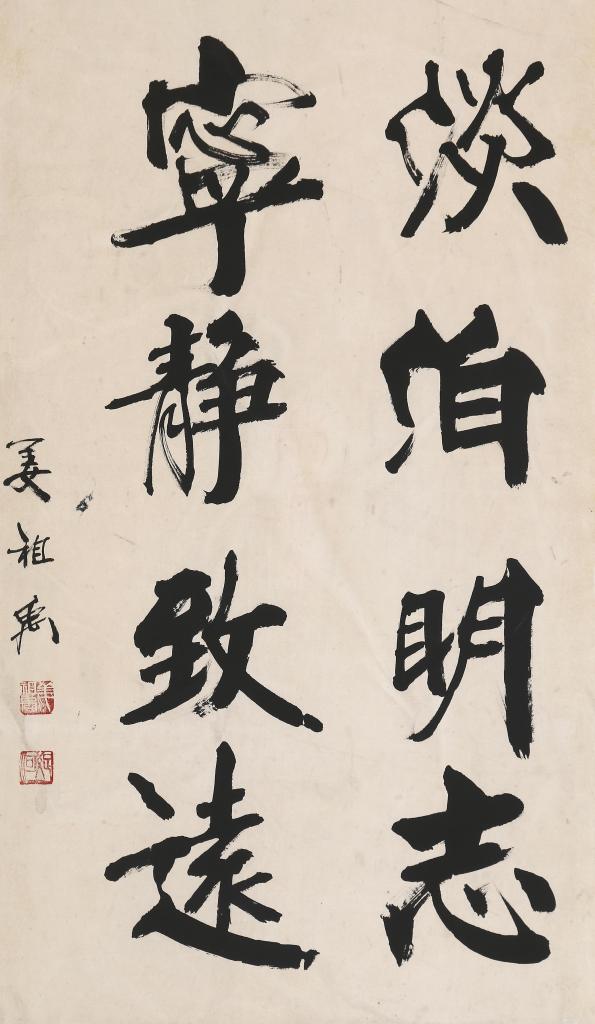 淡泊明志
寧靜致遠
姜祖禹